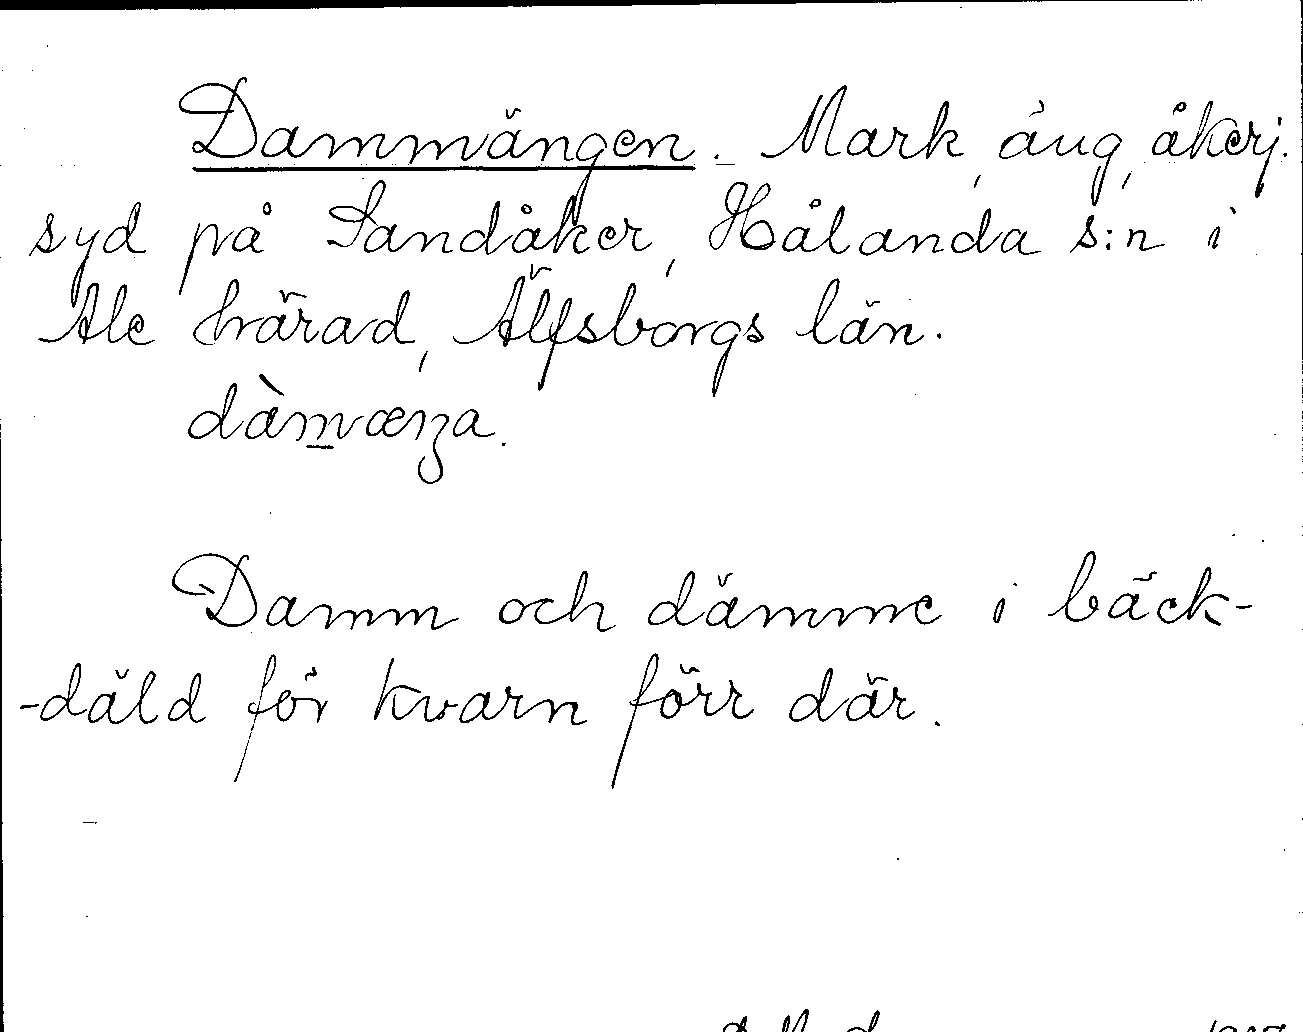 Dammängen. Mark, äng, åkerj.
syd på Sandåker, Hålanda s:n i
Ale härad, Älfsborgs län.
dàm̲væŋa.
Damm och dämme i bäck-
-däld för kvarn förr där.